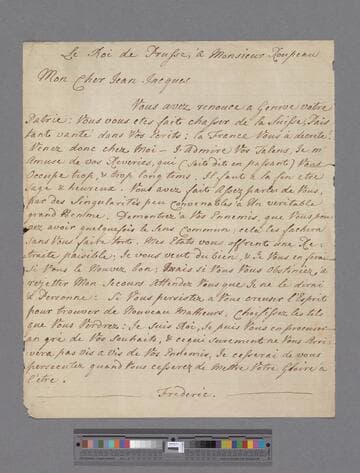 Le Roi de Prusse, à Monsieur Rousseau
Mon Cher Jean Jacques
Vous avez renoncé a Genève votre
Patrie: Vous vous etes fait chasser de la Suisse, Païs
tant vanté dans Vos Ecrits; la France Vous a decreté.
Venez donc chez Moi— J'admire Vos Talens, Je m'
Amuse de vos Reveries, qui (soit dit en passant) Vous
Occupe trop, & trop long tems. Il faut à la fin etre
Sage & heureux. Vous avez fait Assez parler de Vous,
par des Singularités peu Convenables à Un veritable
grand Homme. Demontrez à Vos Ennemis, que Vous pou-
vez avoir quelquefois le Sens Commun, cela les fachera
Sans Vous faire torte. Mes Etats vous offrent une Re-
traite paisible; Je vous veut du bien, & Je Vous en ferai
Si Vous le trouvez bon. Mais si Vous Vous Obstiniez à
rejetter Mon Secours Attendez Vous que Je ne le dirai
à Personne: Si Vous persistez à Vous creuser l'Esprit
pour trouver de Nouveau Malheurs, Choisissez les tels
que Vous Voudrez: Je Suis Roi, Je puis Vous en procurer
au gré de Vos Souhaits, & ce qui surement ne Vous Arri-
vera pas vis a vis de Vos Ennemis, Je cesserai de vous
persecuter quand Vous cesserez de mettre Votre Gloire à
l'être.
Frederic.